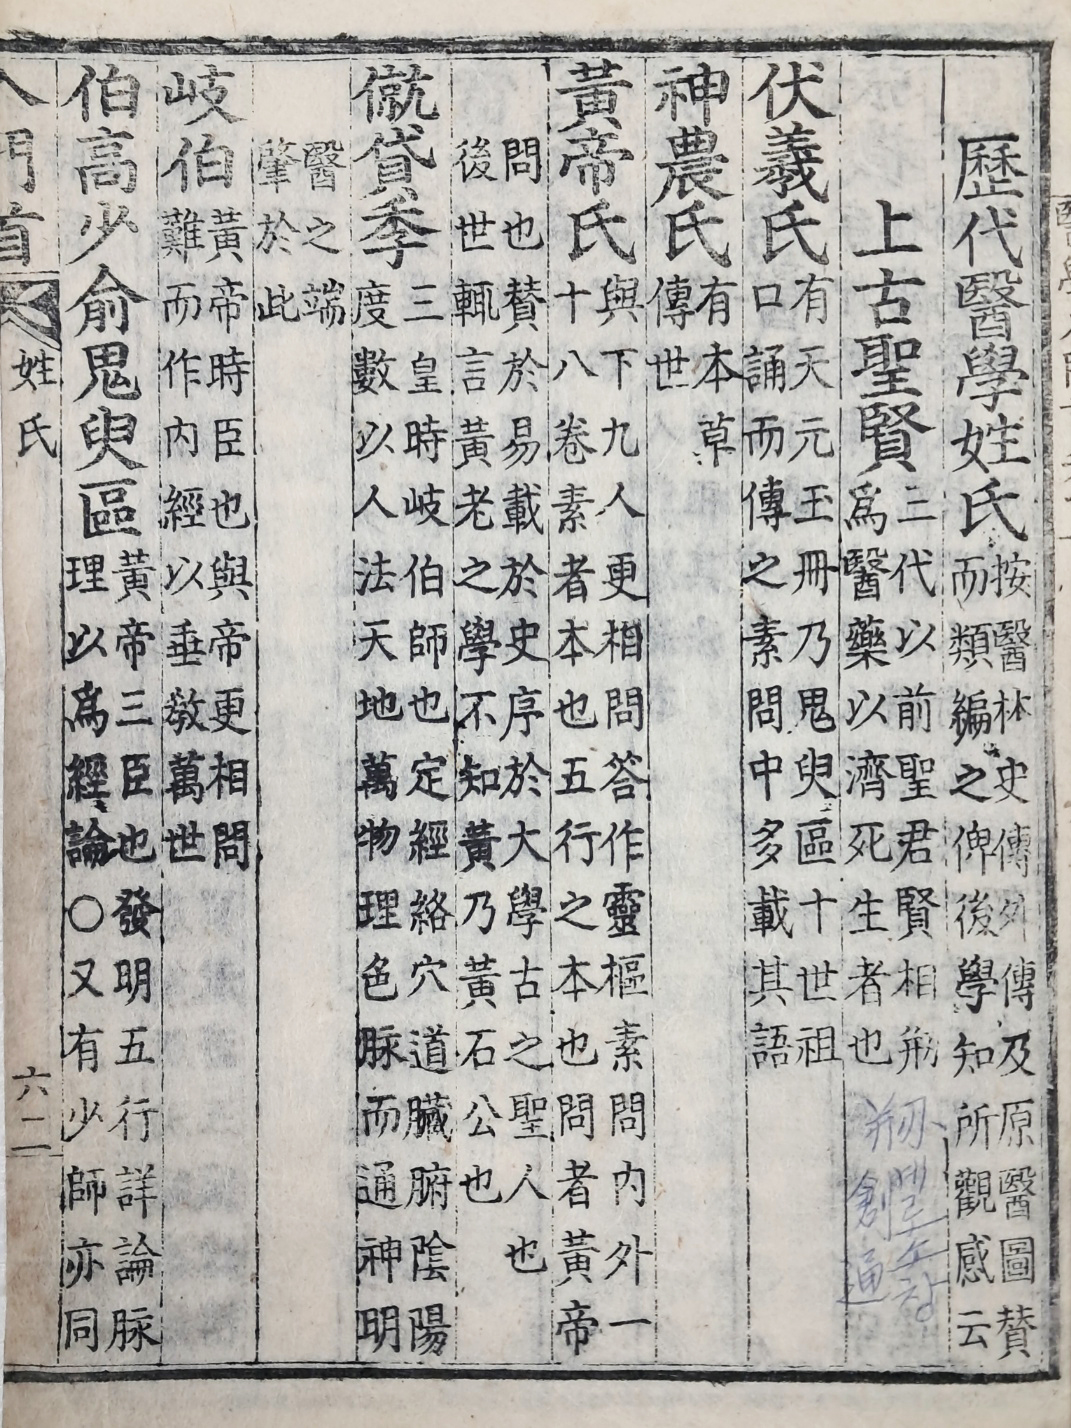 歷代醫學姓氏
按醫林史傳外傳及原醫圖贊
而類編之俾後學知所觀感云
上古聖賢
三代以前聖君賢相剏
爲醫藥以濟死生者也
伏羲氏
有天元玉冊乃鬼臾區十世祖
口誦而傳之素問中多載其語
神農氏
有本草
傳世
黃帝氏
與下九人更相問答作靈樞素問內外一
十八卷素者本也五行之本也問者黃帝
問也贊於易載於史序於大學古之聖人也
後世輒言黃老之學不知黃乃黃石公也
僦貸季
三皇時岐伯師也定經絡穴道臟腑陰陽
度數以人法天地萬物理色脉而通神明
醫之端
肇於此
岐伯
黃帝時臣也與帝更相問
難而作內經以垂敎萬世
伯高少俞鬼臾區
黃帝三臣也發明五行詳論脉
理以爲經論〇又有少師亦同
入門首
姓氏
六二